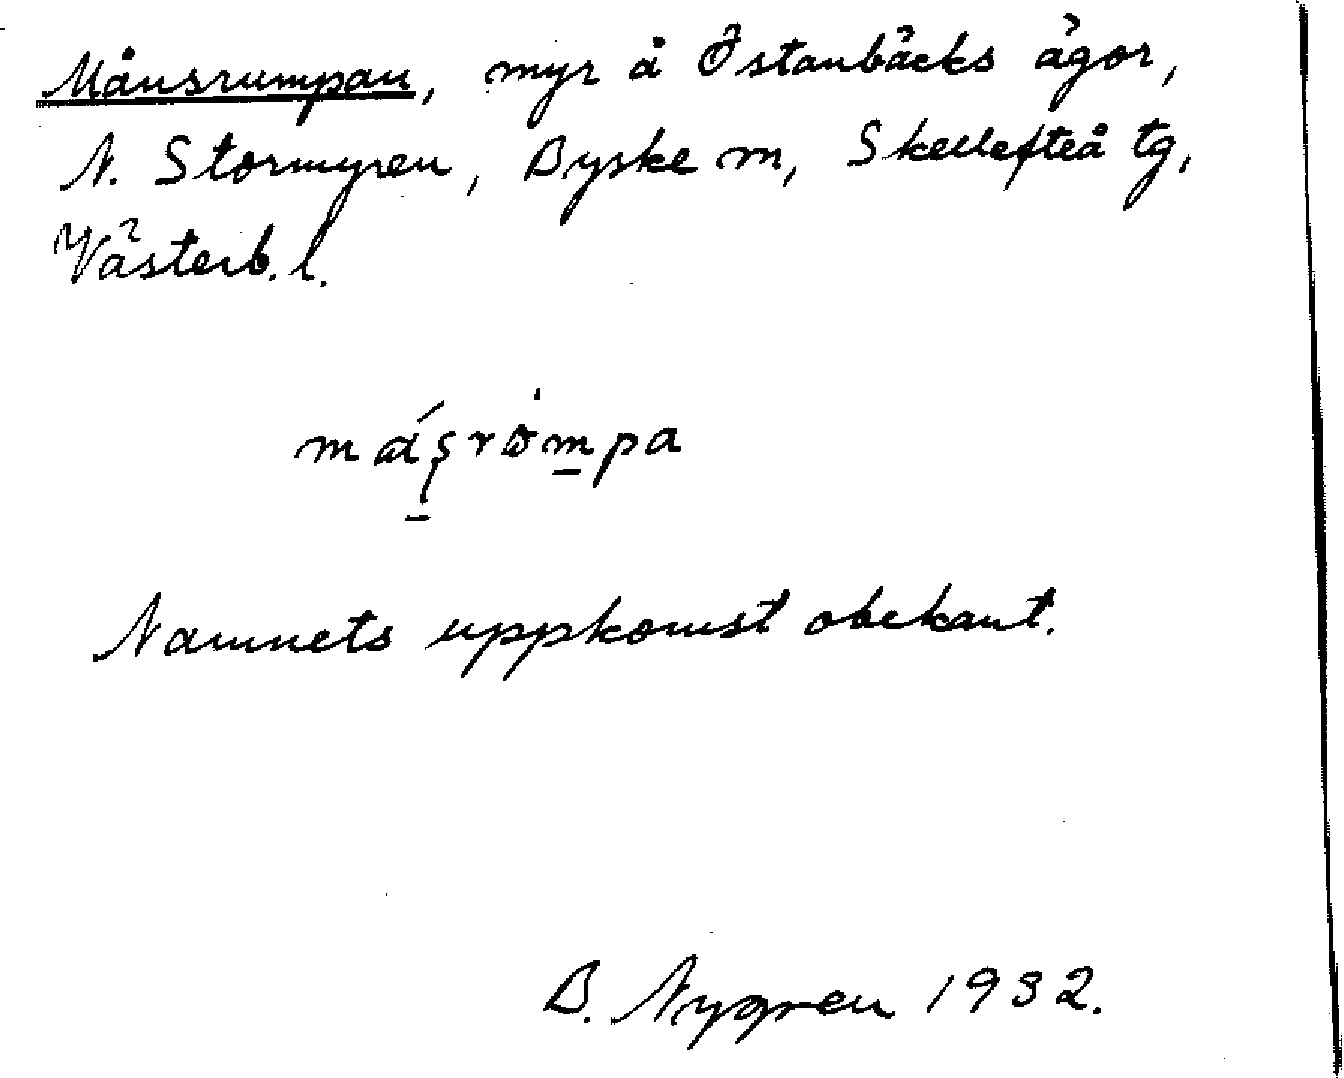 Månsrumpan, myr å Östanbäcks ägor,
N. Stormyren, Byske m, Skellefteå tg,
Västerb. l.
Namnets uppkomst obekant.
B. Nygren 1932.